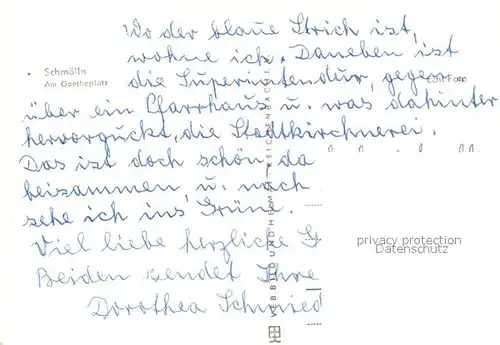 Wo der blaue Strich ist,
wohne ich. Daneben ist
Schmölln
die Superintendur, gegen-
Am Goetheplatz
Echt Foto
über ein Pfarrhaus u. was dahinter
hervorguckt, die Stadtkirchnerei.
Das ist doch schön da
beisammen u. nach
sehe ich ins Grüne.
Viel liebe herzliche G
privacy protection
Datenschutz
Beiden sendet Ihre
Dorothea Schmied
VEB BILD UND HEIMAT REICHENBACH